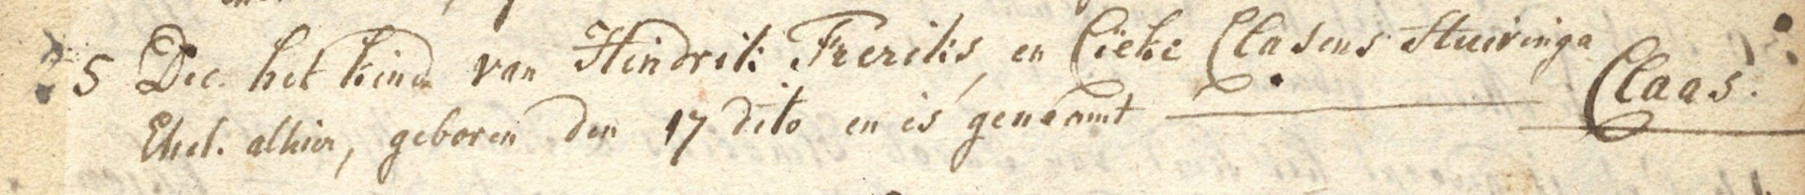 25 Dec. het kind van Hindrik Freriks, en Cieke Clasens Stuivinga
Ehel. alhier, geboren den 17 dito en is genaamt — Claas.